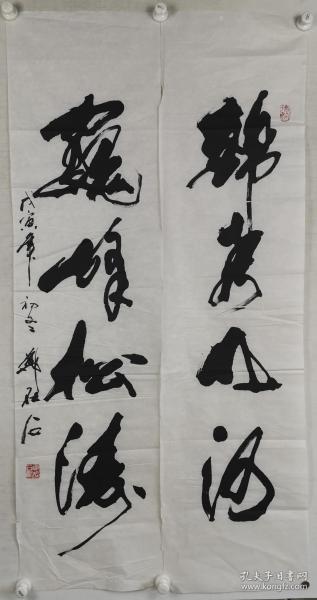 錦秀山河
巍峰松濤
戊寅年初冬
孔夫子旧书网
book.kongfz.com